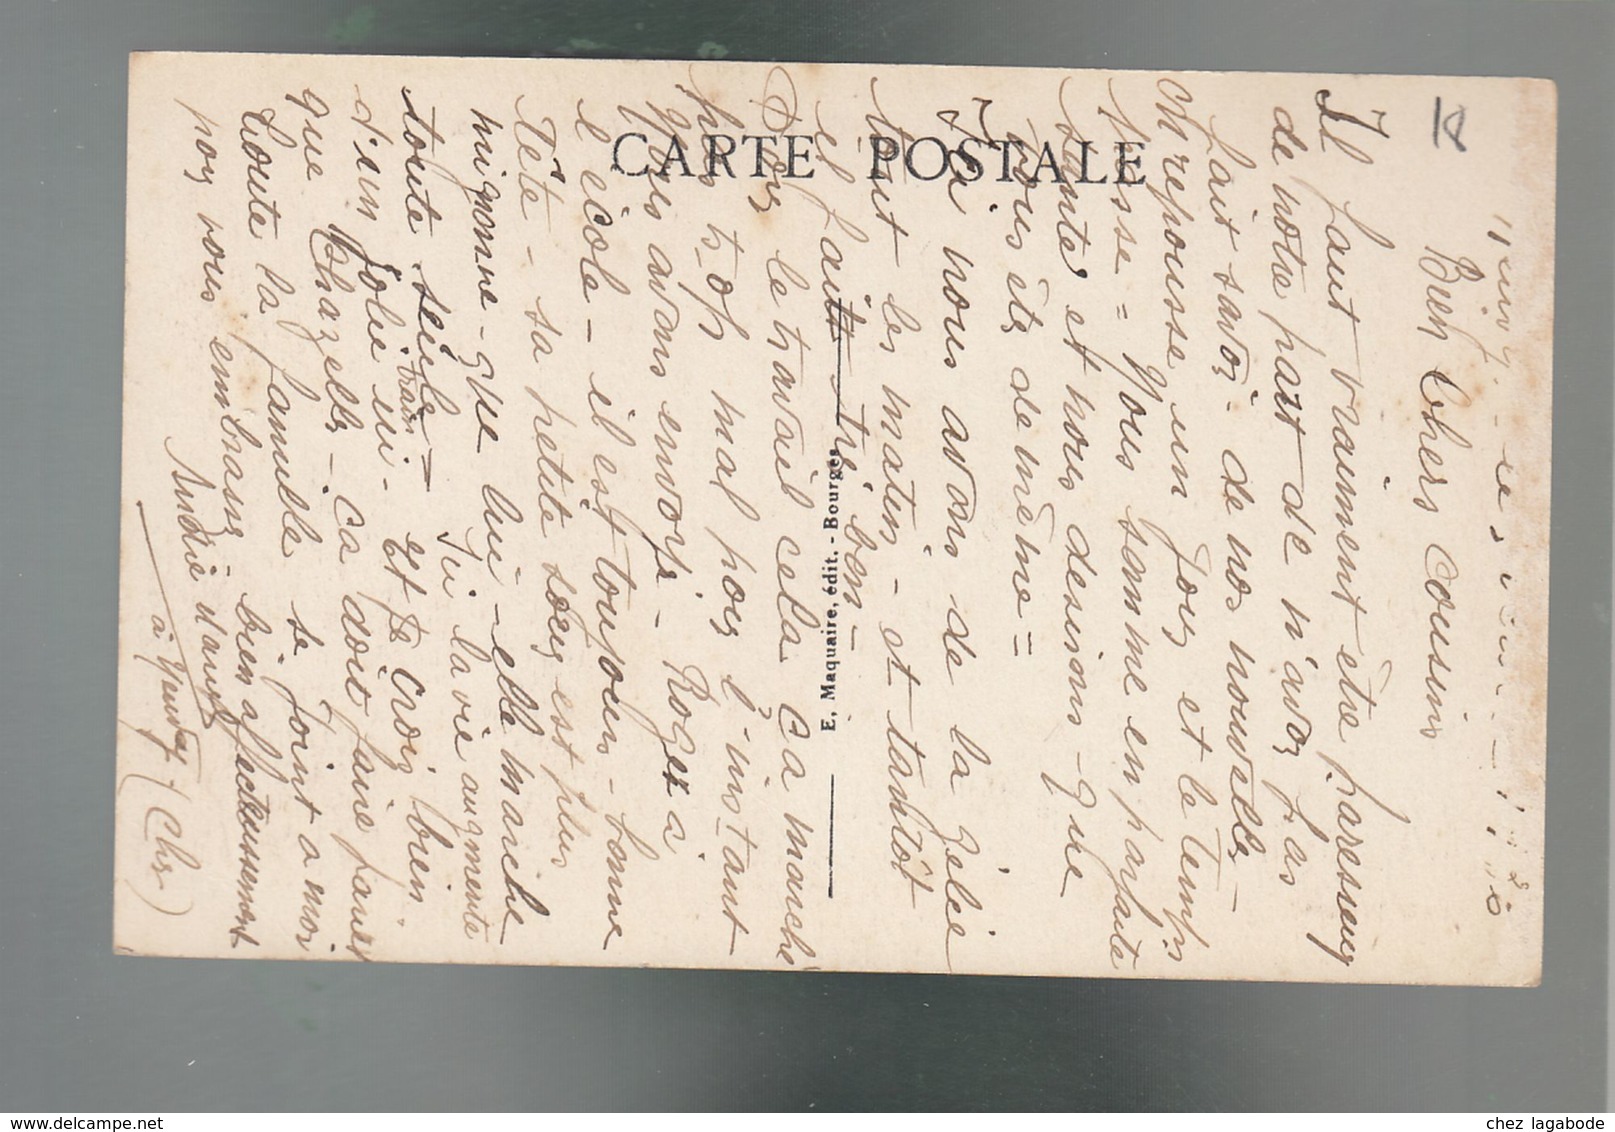 CARTE POSTALE
E. Maquaire, édit. - Bourges
18
Bien Chers Cousins
Il faut vraiment être paresseux
de notre part de n'avoir pas
fait savoir de nos nouvelle -
On repousse un jour et le temps
passe = Nous somme en parfaite
Santés et nous dessirons que
vous êts de même =
Ici nous avons de la gelée
tout les matin - et tantôt
il fait très bon -
Pour le travail cela ça marche
pas trop mal pour l'instant
Nous avons envoyé - Roger a
l'école - il est toujours - bonne
Tête - sa petite soeur est plus
mignonne - que lui - elle marche
toute seule = Ici la vie augmente
d'un jolie train - et je crois bien
que Chazelle - ça doit faire pareil
Toute la famille se joint a moi
pour vous embrasser bien affectueusement
à (Cher)
chez lagabode
delcampe.net